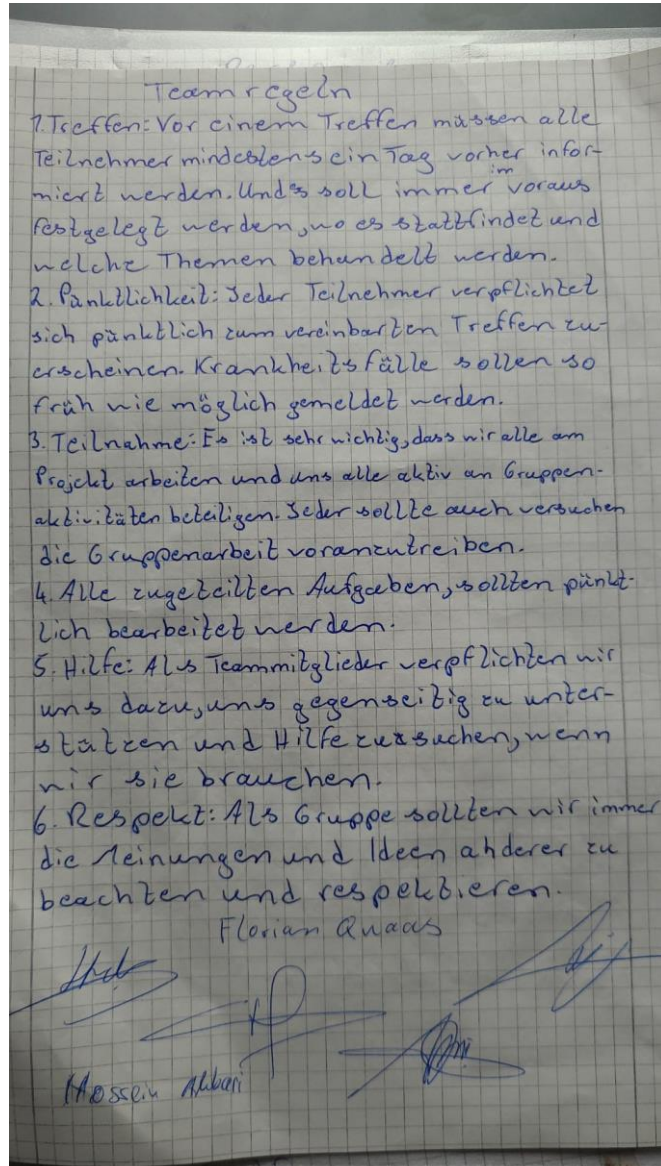 Teamregeln
1. Treffen: Vor einem Treffen müssen alle
Teilnehmer mindestens ein Tag vorher infor-
miert werden. Und es soll immer im voraus
festgelegt werden, wo es stattfindet und
welche Themen behandelt werden.
2. Pünktlichkeit: Jeder Teilnehmer verpflichtet
sich pünktlich zum vereinbarten Treffen zu-
erscheinen. Krankheitsfälle sollen so
früh wie möglich gemeldet werden.
3. Teilnahme: Es ist sehr wichtig, dass wir alle am
Projekt arbeiten und uns alle aktiv an Gruppen-
aktivitäten beteiligen. Jeder sollte auch versuchen
die Gruppenarbeit voranzutreiben.
4. Alle zugeteilten Aufgaben, sollten pünkt-
lich bearbeitet werden.
5. Hilfe: Als Teammitglieder verpflichten wir
uns dazu, uns gegenseitig zu unter-
stützen und Hilfe zu suchen, wenn
wir sie brauchen.
6. Respekt: Als Gruppe sollten wir immer
die Meinungen und Ideen anderer zu
beachten und respektieren.
Florian Quaas
Hossein Akbari